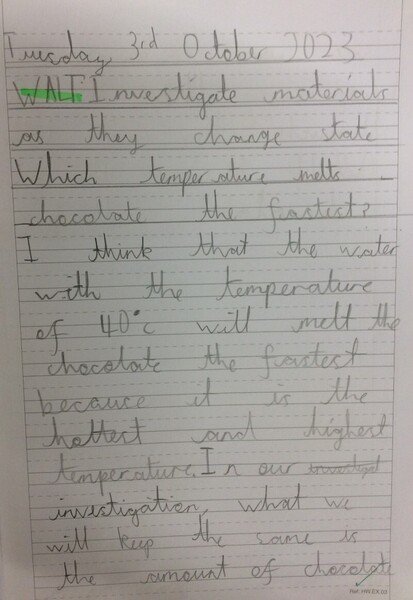 Tuesday 3rd October 2023
WALT: Investigate materials
as they change state
Which temperature melts
chocolate the fastest?
I think that the water
with the temperature
of 40°c will melt the
chocolate the fastest
because it is the
hottest and highest
temperature. In our investigat
investigation, what we
will keep the same is
the amount of chocolate
Ref: HW.EX.03